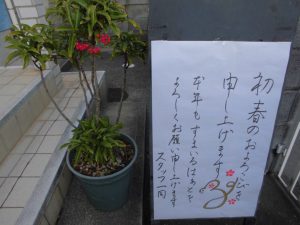 初春のおよろこびを
申し上げます
本年もすまいるはあとを
よろしくお願い申し上げます
スタッフ一同